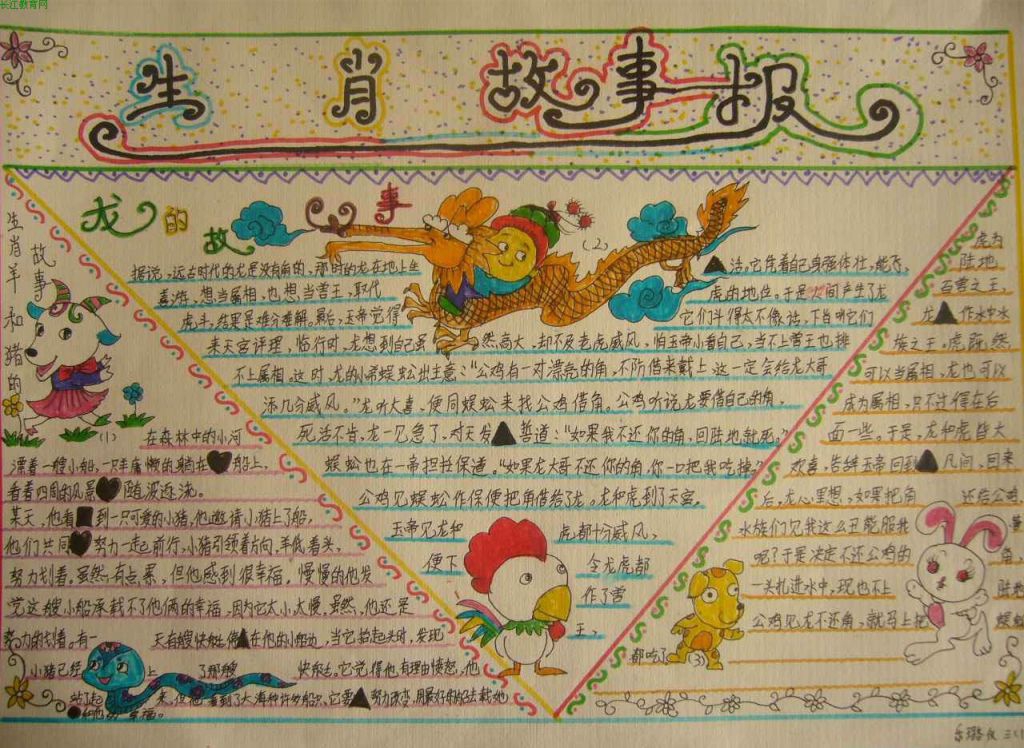 长江教育网
生肖故事报
生肖羊和猪的
故事
(1)
在森林中的小河
漂着一艘小船,一只羊慵懒的躺在船上,
看着四周的风景随波逐流。
某天,他看到一只可爱的小猪,他邀请小猪上了船,
他们共同努力一起前行,小猪引领着方向,羊低着头,
努力划着,虽然有点累,但他感到很幸福,慢慢的他发
觉这艘小船承载不了他俩的幸福,因为它太小太慢,虽然,他还是
努力的划着。有一天有艘快艇停在他的小船边,当它抬起头时,发现
小猪已经上了那艘快艇,它觉得他有理由愤怒,他
站了起来,但他看到了大海种许多船只,它要努力改变,用最好的船去载她
和他的幸福。
龙的故事
(2)
据说,远古时代的龙是没有角的,那时的龙在地上生活,它凭着自己身强体壮,能飞,
善游,想当属相,也想当兽王,取代虎的地位。于是人间产生了龙
虎斗,结果是难分难解。最后,玉帝觉得它们斗得太不像话,下旨叫它们
来天宫评理,临行时,龙想到自己虽然高大,却不及老虎威风,怕玉帝小看自己,当不上兽王也排
不上属相。这时,龙的小弟蜈蚣出主意:“公鸡有一对漂亮的角,不防借来戴上这一定会给龙大哥
添几分威风。”龙听大喜,便同蜈蚣来找公鸡借角。公鸡听说龙要借自己的角,
死活不肯,龙一见急了,对天发誓道:“如果我不还你的角,回陆地就死。”
蜈蚣也在一帝担抚保道,“如果龙大哥不还你的角,你一口把我吃掉”
公鸡见蜈蚣作保便把角借给了龙。龙和虎到了天宫,
玉帝见龙和虎都十分威风,
便下令龙虎都
作了兽
王,
虎为
陆地
百兽之王,
龙作水中水
族之王。虎既然
可以当属相,龙也可以
成为属相,只不过得在后
面一些。于是,龙和虎皆大
欢喜,告辞玉帝回到凡间,回来
后,龙心里想,如果把角还给公鸡
水族们见我这么丑能服我
呢?于是决定不还公鸡的角,
一头扎进水中,现也不上陆地
公鸡见龙不还角,就马上把蜈蚣
都吃了
(3)